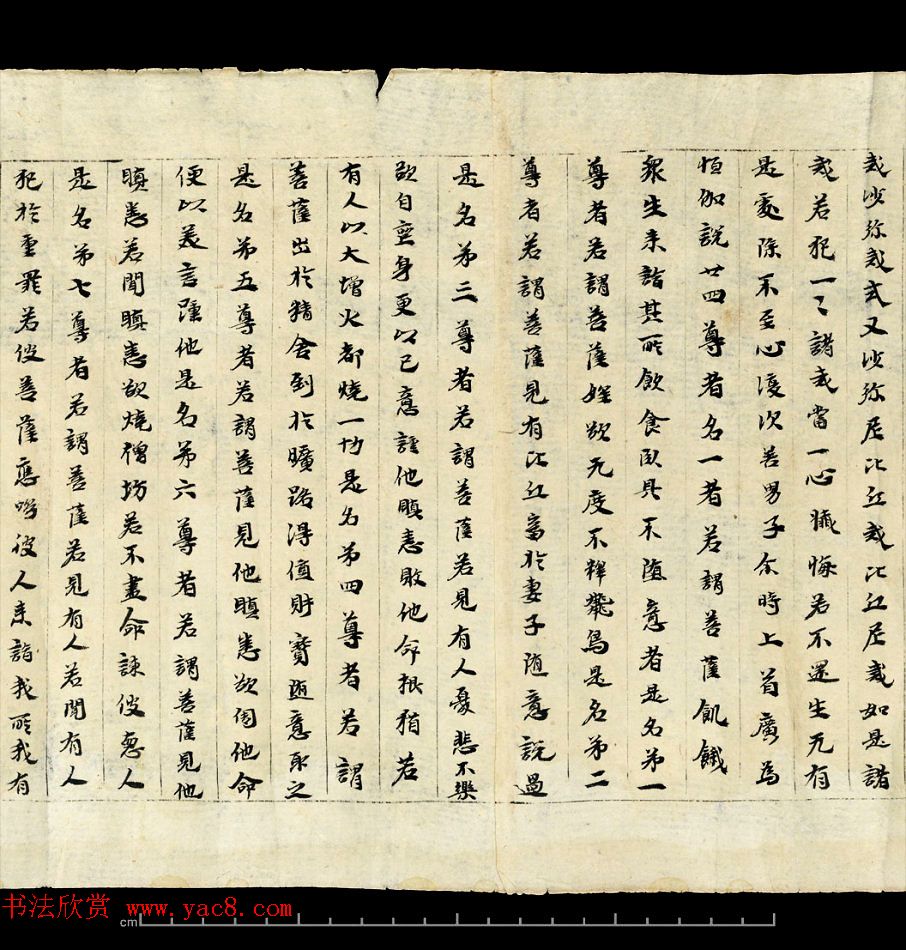 戒沙弥戒式叉沙弥尼比丘戒比丘尼戒如是諸
戒若犯一〻諸戒當一心懺悔若不還生无有
是處除不至心復次善男子尒時上首廣為
恒伽說廿四尊者名一者若謂菩薩飢餓
衆生来詣其所飲食臥具不随意者是名第一
尊者若謂菩薩婬欲无度不擇禽獸是名第二
尊者若謂菩薩見有比丘畜於妻子随意說過
是名第三尊者若謂菩薩若見有人憂悲不樂
欲自亡身更以已意誑他瞋恚敗他命根稍若
有人以大增火都燒一切是名第四尊者若謂
菩薩出於精舍到於曠路得值財寶随意取之
是名第五尊者若謂菩薩見他瞋恚欲他命
便以美言他是名第六尊者若謂菩薩見他
瞋恚若聞瞋恚欲燒僧坊若不盡命諫彼惡人
是名第七尊者若謂菩薩若見有人若聞有人
犯於重罪若彼菩薩應喚彼人来詣我所我有
书法欣赏 www.yac8.com
cm